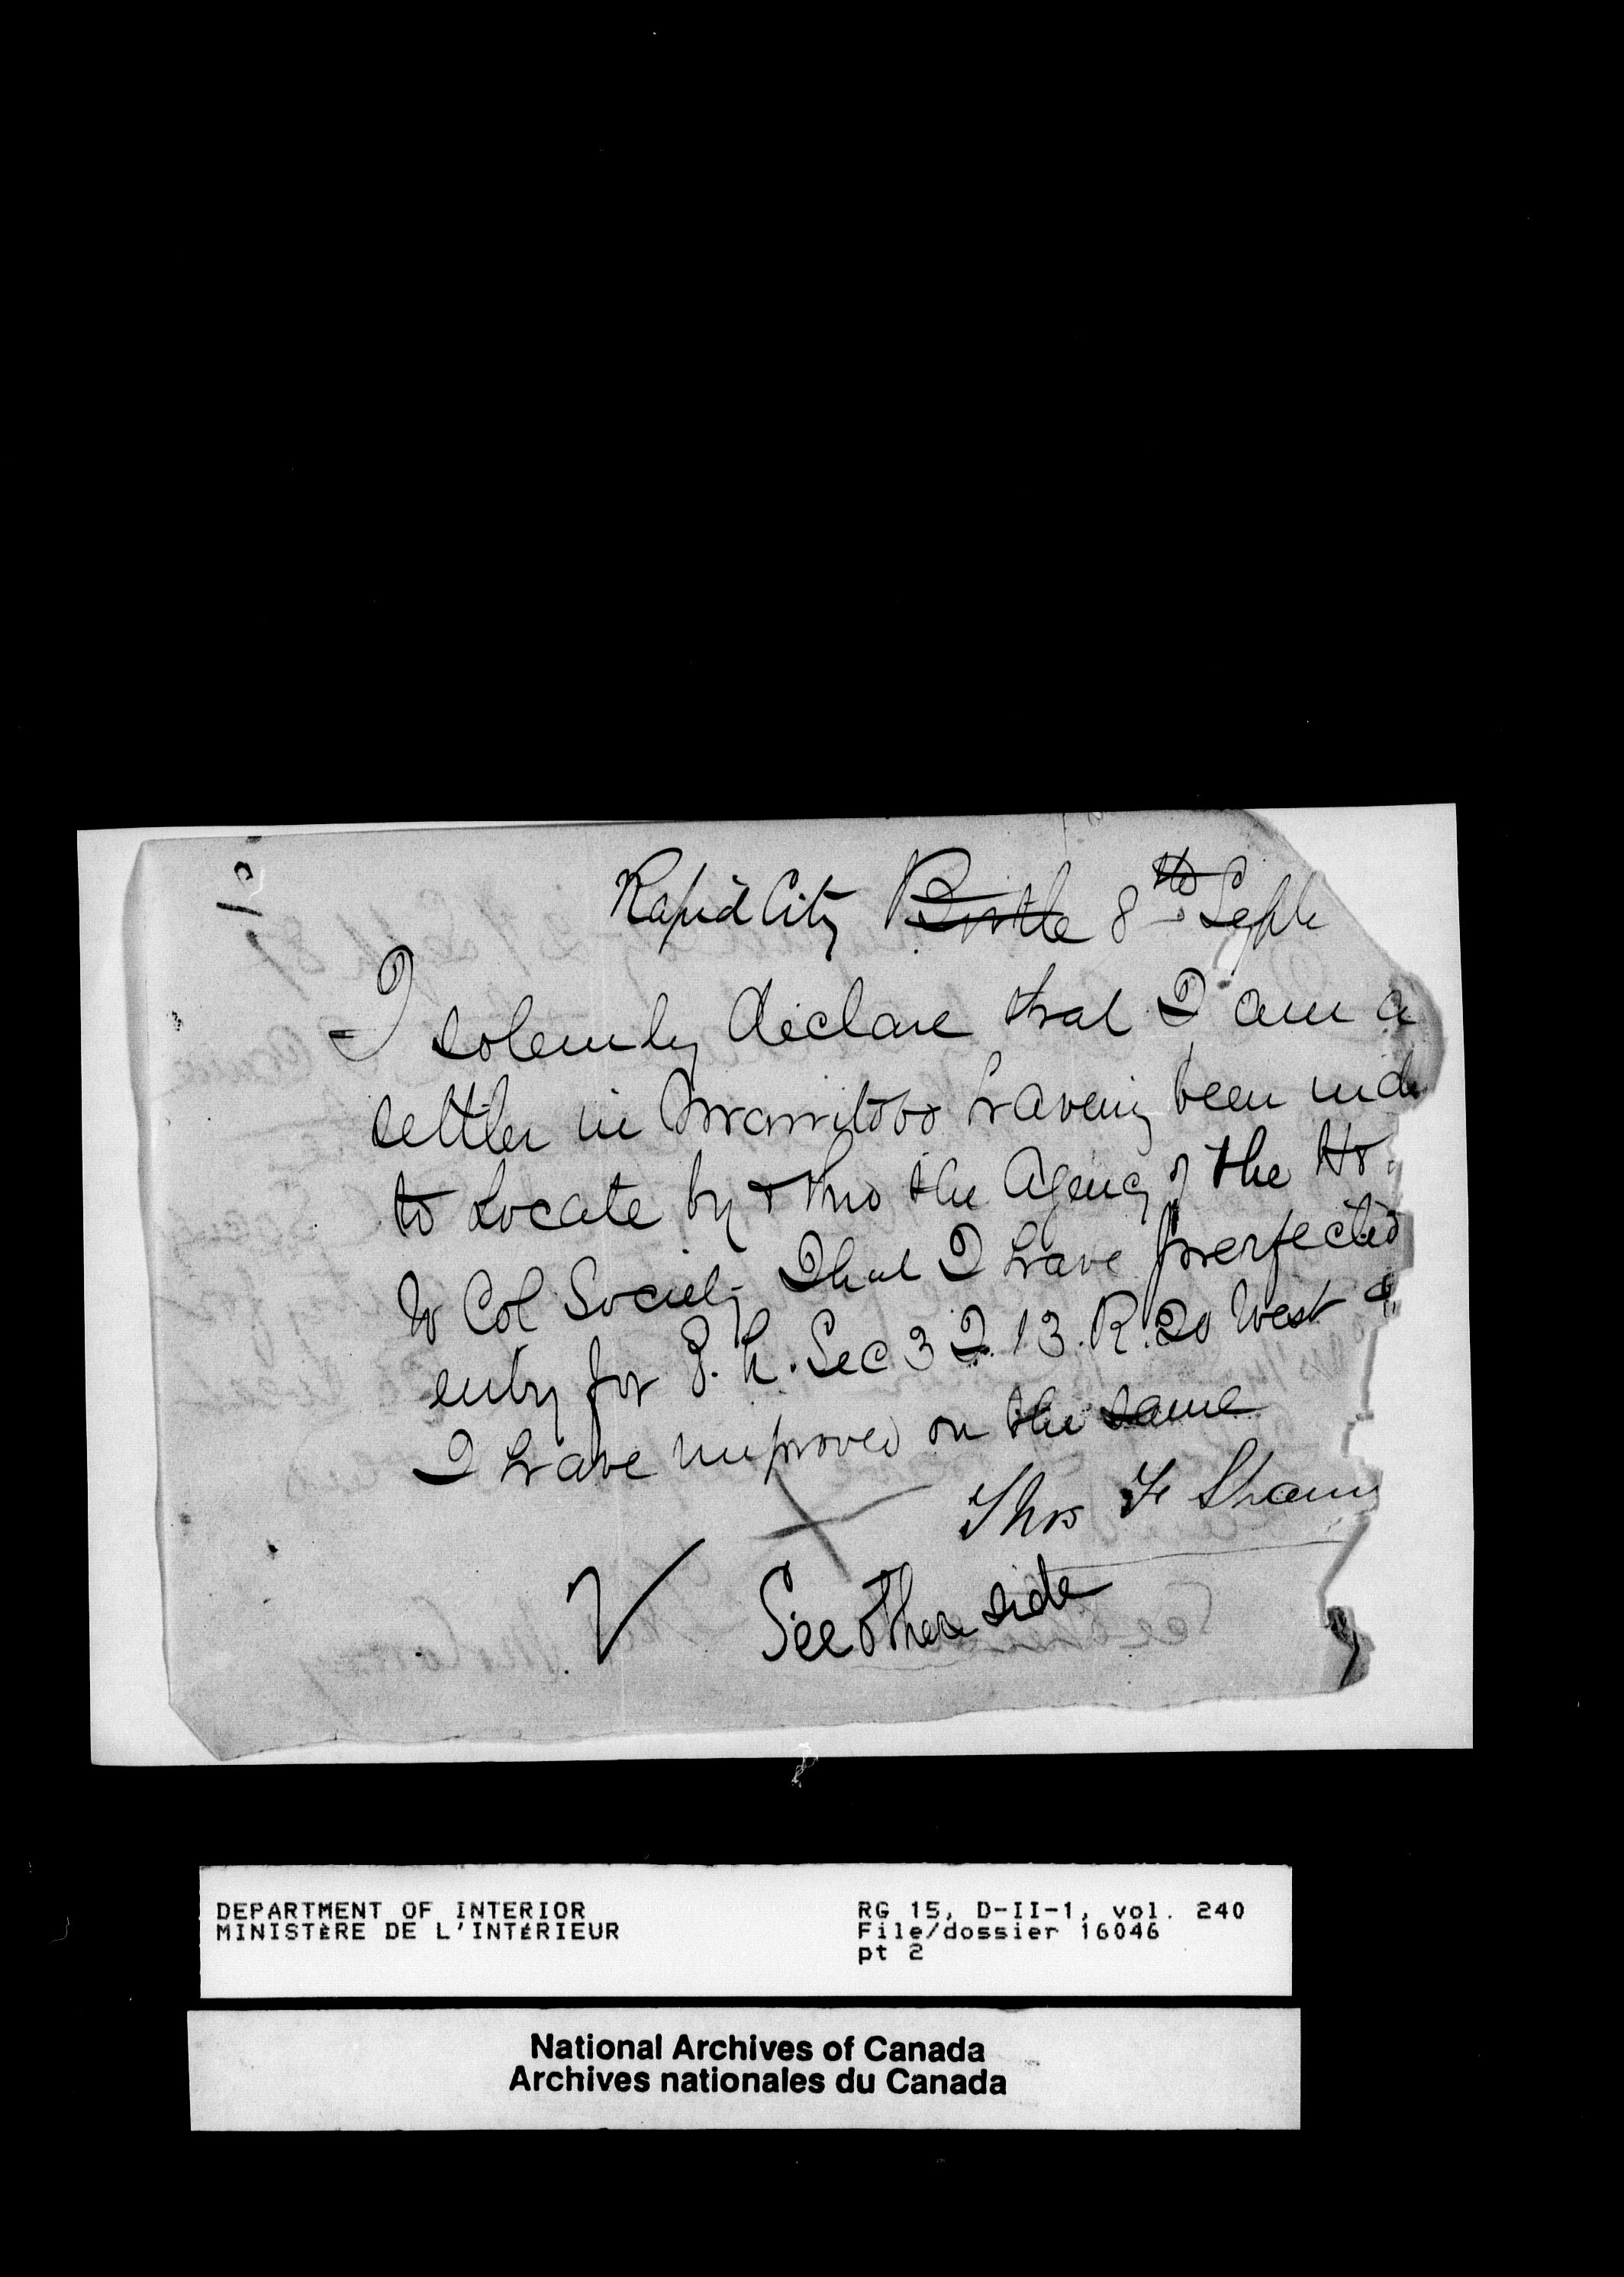 Rapid City Birtle 8th Sept
I solemnly declare that I am a
settler in Manitoba having been
to Locate by & thro the Agency of the
W Col Society That I have perfected
entry for Sec 32. 13. R. 20 West &
I have improved on the same
Thos
See other side
DEPARTMENT OF INTERIOR
MINISTÈRE DE L'INTÉRIEUR
RG 15, D-II-1, vol. 240
File/dossier 16046
pt 2
National Archives of Canada
Archives nationales du Canada